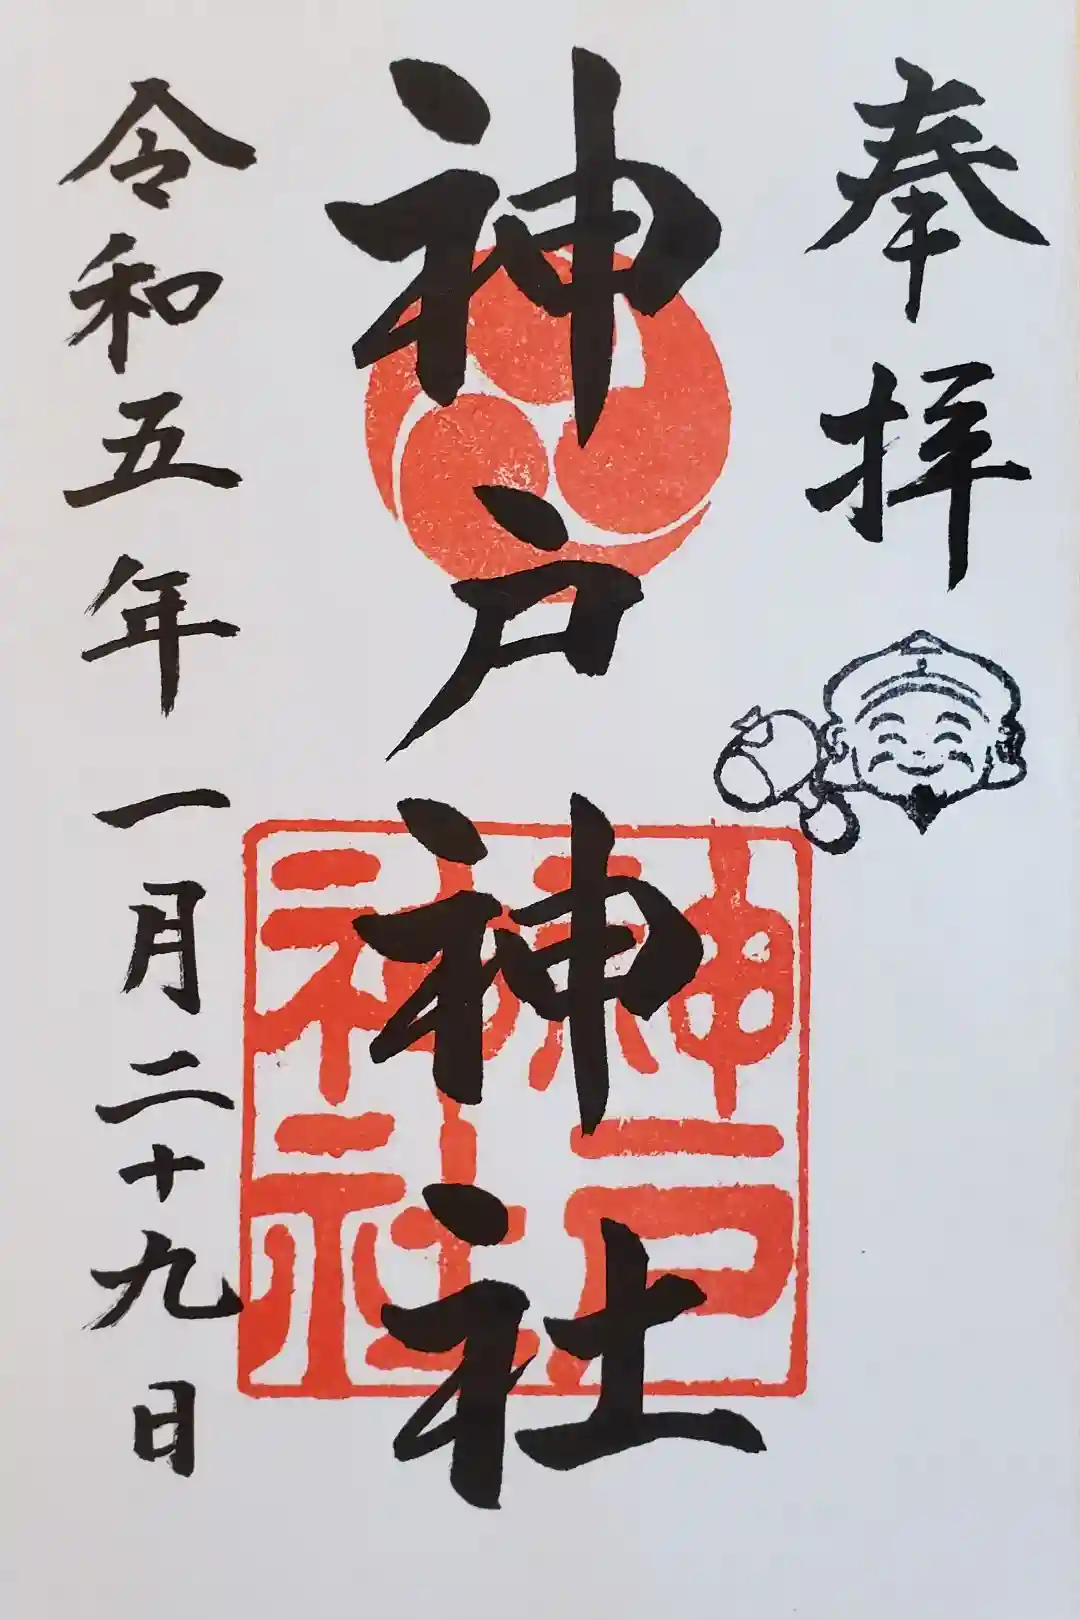 奉拝
神戸神社
神戸神社
令和五年一月二十九日